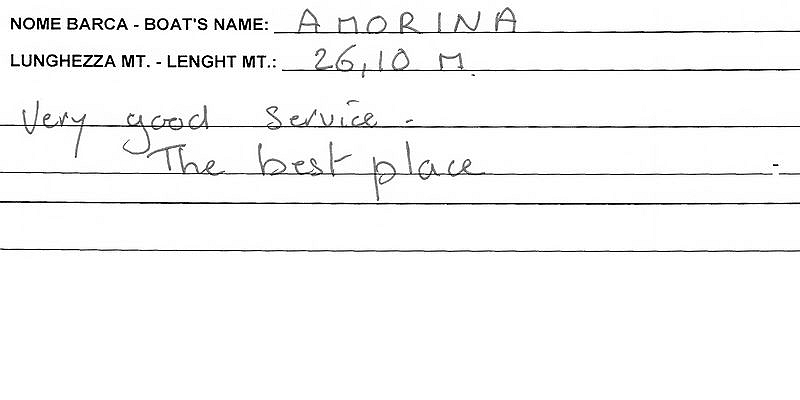 NOME BARCA - BOAT'S NAME: AMORINA
LUNGHEZZA MT. - LENGHT MT.: 26,10 M.
Very good service -
The best place -